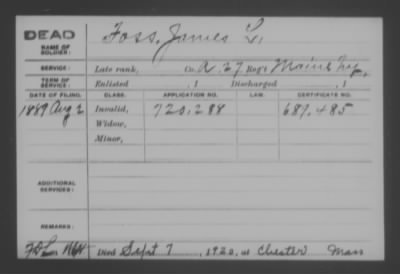 DEAD
NAME OF SOLDIER:
Foss, James L.
SERVICE:
Late rank, Co. A. 27 Reg't Maine Inf.
TERM OF SERVICE:
Enlisted , 1 Discharged , 1
DATE OF FILING. CLASS. APPLICATION NO. LAW. CERTIFICATE NO.
1889 Aug 2 Invalid, 720,288 689,485
Widow,
Minor,
ADDITIONAL SERVICES:
REMARKS:
Died Sept 7, 1920, at Chester Mass